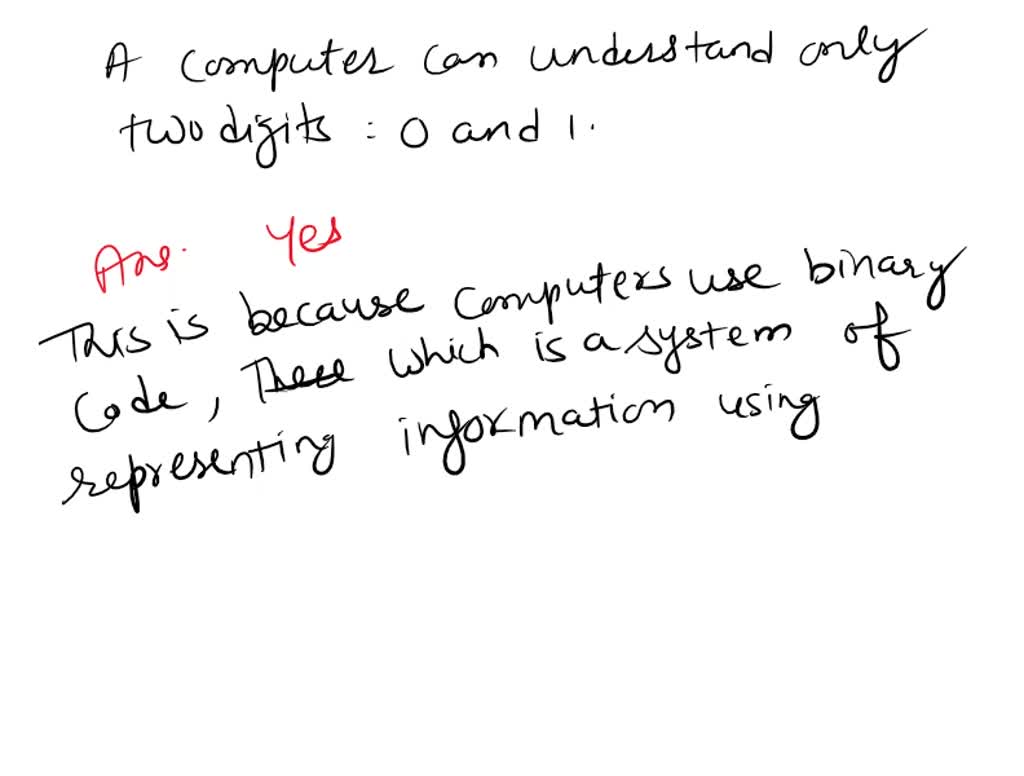 A computer can understand only
two digits : 0 and 1.
Ans. Yes
This is because computers use binary
Code, These which is a system of
representing information using